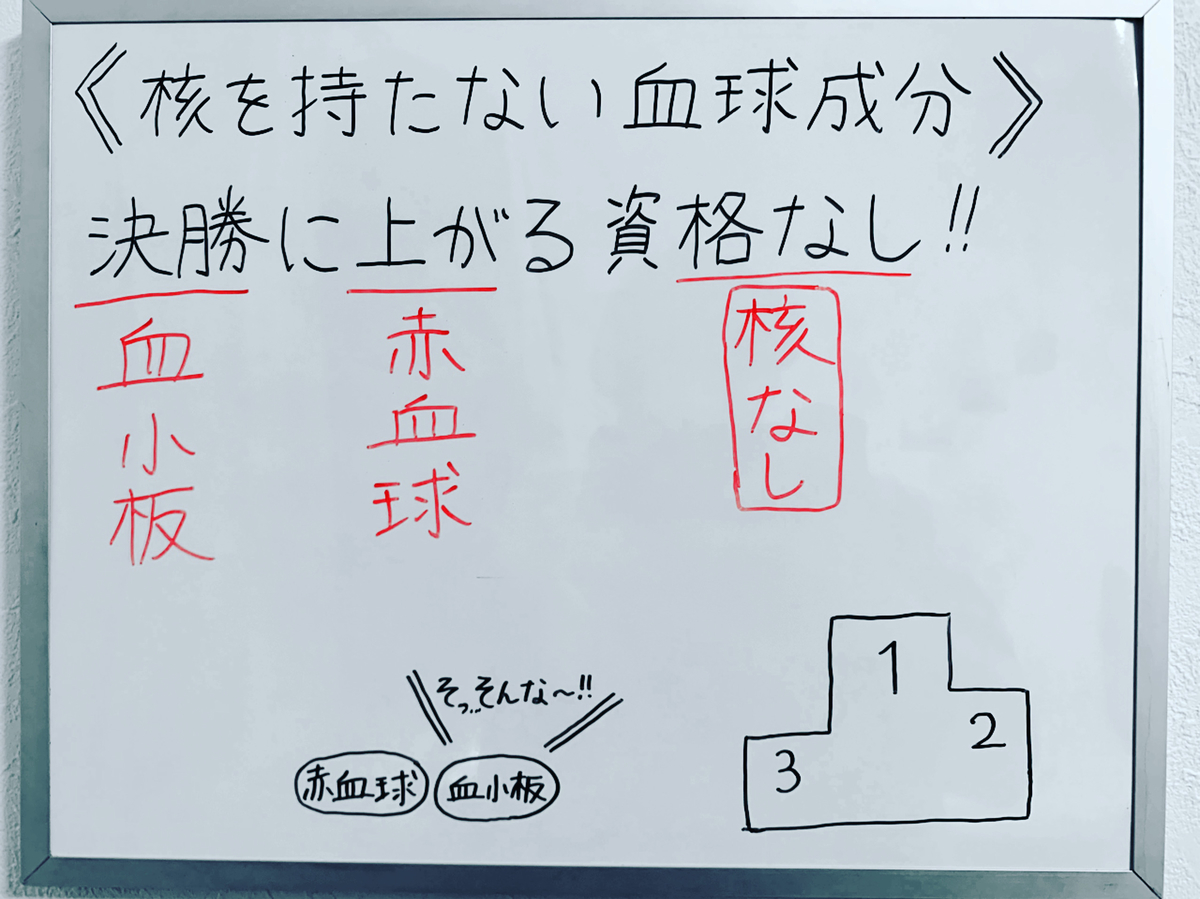 《核を持たない血球成分》
決勝に上がる資格なし!!
血小板
赤血球
核なし
そっ…そんな〜!!
赤血球
血小板
1
2
3